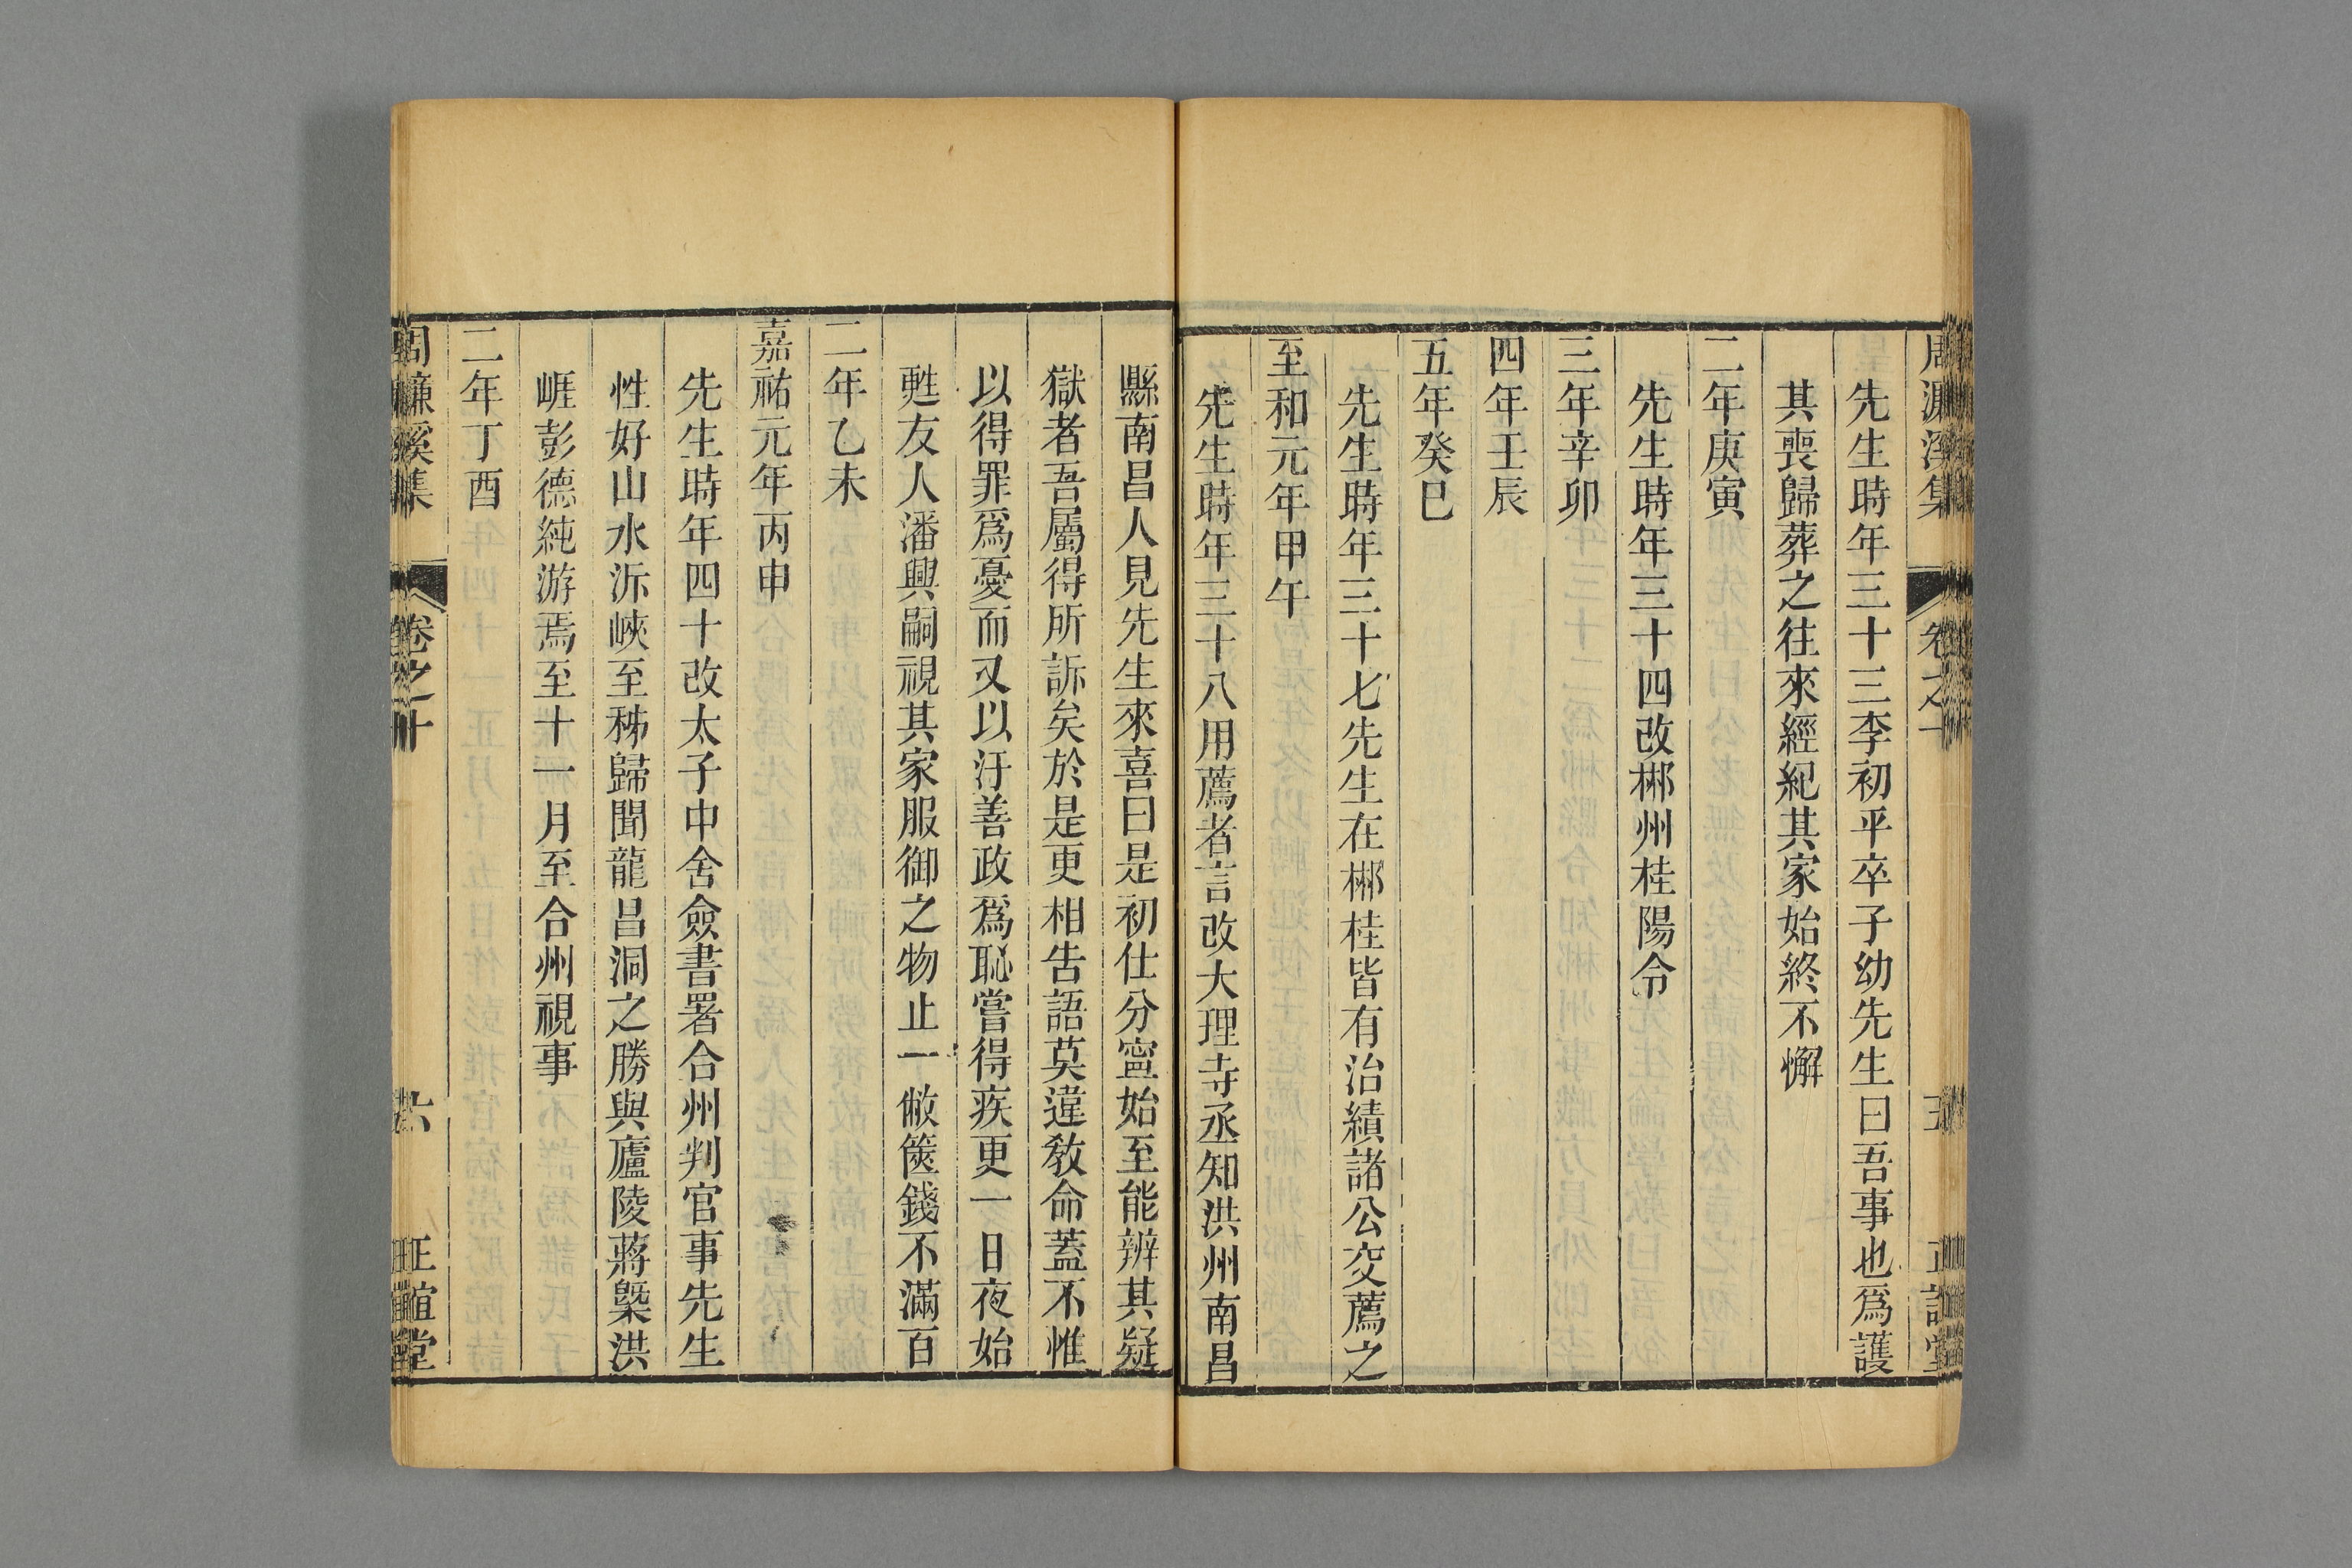 周濂溪集 卷之十 五 正誼堂
先生時年三十三李初平卒子幼先生曰吾事也爲護
其喪歸葬之往來經紀其家始終不懈
二年庚寅
先生時年三十四改郴州桂陽令
三年辛卯
四年壬辰
五年癸巳
先生時年三十七先生在郴桂皆有治績諸公交薦之
至和元年甲午
先生時年三十八用薦者言改大理寺丞知洪州南昌
縣南昌人見先生來喜曰是初仕分寧始至能辨其疑
獄者吾屬得所訴矣於是更相告語莫違教命蓋不惟
以得罪爲憂而又以汙善政爲恥嘗得疾更一日夜始
甦友人潘興嗣視其家服御之物止一敝篋錢不滿百
二年乙未
嘉祐元年丙申
先生時年四十改太子中舍僉書署合州判官事先生
性好山水泝峽至秭歸聞龍昌洞之勝與廬陵蔣槩洪
崕彭德純游焉至十一月至合州視事
二年丁酉
周濂溪集 卷之十 六 正誼堂